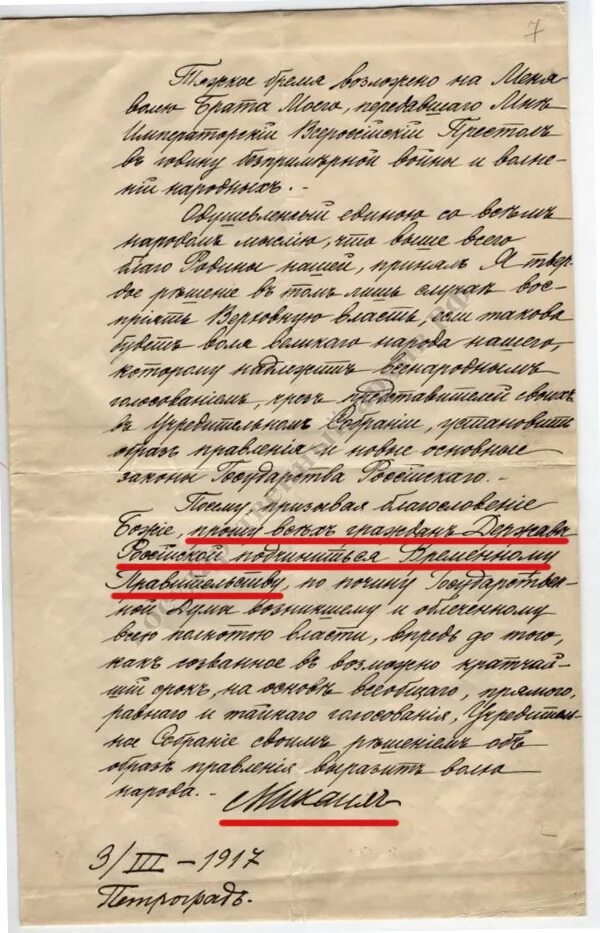 7
Тяжкое бремя возложено на Меня
волею Брата Моего, передавшего Мнѣ
Императорскій Всероссійскій Престолъ
въ годину безпримѣрной войны и волне-
ній народныхъ. -
Одушевленный единою со всѣмъ
народомъ мыслію, что выше всего
благо Родины нашей, принялъ Я твер-
дое рѣшеніе въ томъ лишь случаѣ вос-
пріять Верховную власть, если такова
будетъ воля великаго народа нашего,
которому надлежитъ всенароднымъ
голосованіемъ, чрезъ представителей своихъ
въ Учредительномъ Собраніи, установить
образъ правленія и новые основные
законы Государства Россійскаго. -
Посему, призывая благословеніе
Божіе, прошу всѣхъ гражданъ Державы
Россійской подчиниться Временному
Правительству, по почину Государствен-
ной Думы возникшему и облеченному
всею полнотою власти, впредь до того,
какъ созванное въ возможно кратчай-
шій срокъ, на основѣ всеобщаго, прямого,
равнаго и тайнаго голосованія, Учредитель-
ное Собраніе своимъ рѣшеніемъ объ
образѣ правленія выразитъ волю
народа. -
Михаилъ
3/III - 1917
Петроградъ.